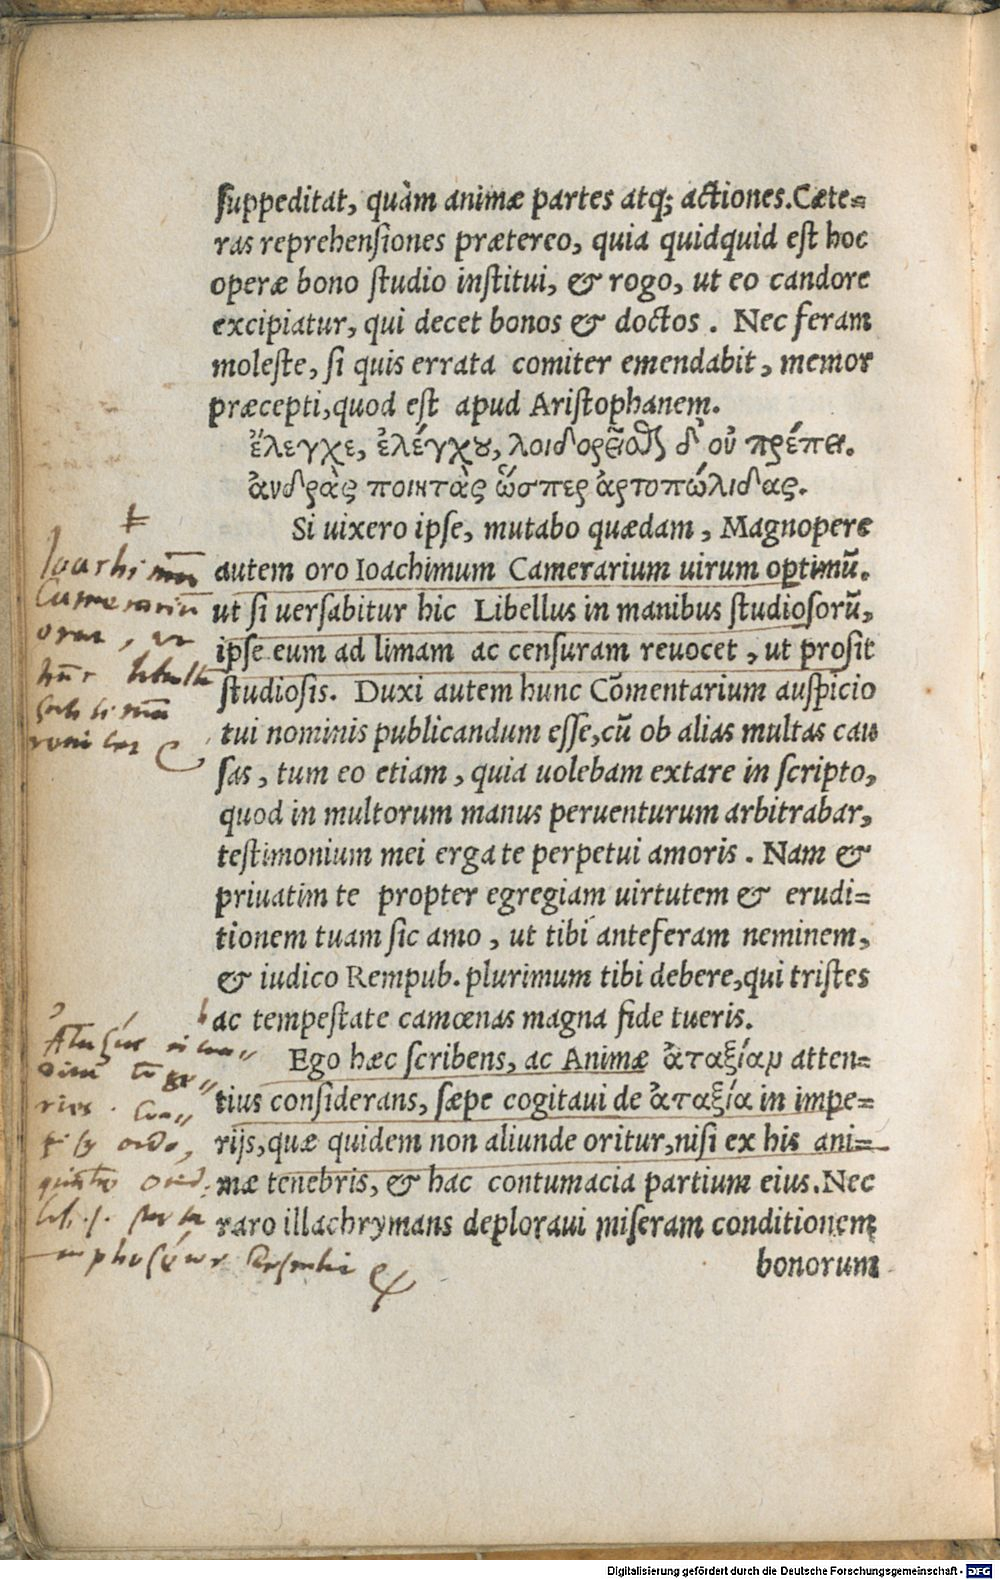 suppeditat, quàm animæ partes atq; actiones. Cæte=
ras reprehensiones prætereo, quia quidquid est hoc
operæ bono studio institui, & rogo, ut eo candore
excipiatur, qui decet bonos & doctos. Nec feram
moleste, si quis errata comiter emendabit, memor
præcepti, quod est apud Aristophanem.
ἔλεγχε, ἐλέγχου, λοιδορεῖσθαι δ' οὐ πρέπει.
ἀνδρὰς ποιητὰς ὥσπερ ἀρτοπώλιδας.
Si uixero ipse, mutabo quædam, Magnopere
autem oro Ioachimum Camerarium uirum optimũ.
ut si uersabitur hic Libellus in manibus studiosorũ,
ipse eum ad limam ac censuram reuocet, ut prosit
studiosis. Duxi autem hunc Cõmentarium auspicio
tui nominis publicandum esse, cũ ob alias multas cau
sas, tum eo etiam, quia uolebam extare in scripto,
quod in multorum manus peruenturum arbitrabar,
testimonium mei erga te perpetui amoris. Nam &
priuatim te propter egregiam uirtutem & erudi=
tionem tuam sic amo, ut tibi anteferam neminem,
& iudico Rempub. plurimum tibi debere, qui tristes
ac tempestate camœnas magna fide tueris.
Ego hæc scribens, ac Animæ ἀταξίαν atten=
tius considerans, sæpe cogitaui de ἀταξίᾳ in impe=
rijs, quæ quidem non aliunde oritur, nisi ex his ani=
mæ tenebris, & hac contumacia partium eius. Nec
raro illachrymans deploraui miseram conditionem
bonorum
Ioachimũ
Camerariũ
orat, ut
hũc libellũ
Digitalisierung gefördert durch die Deutsche Forschungsgemeinschaft - DFG